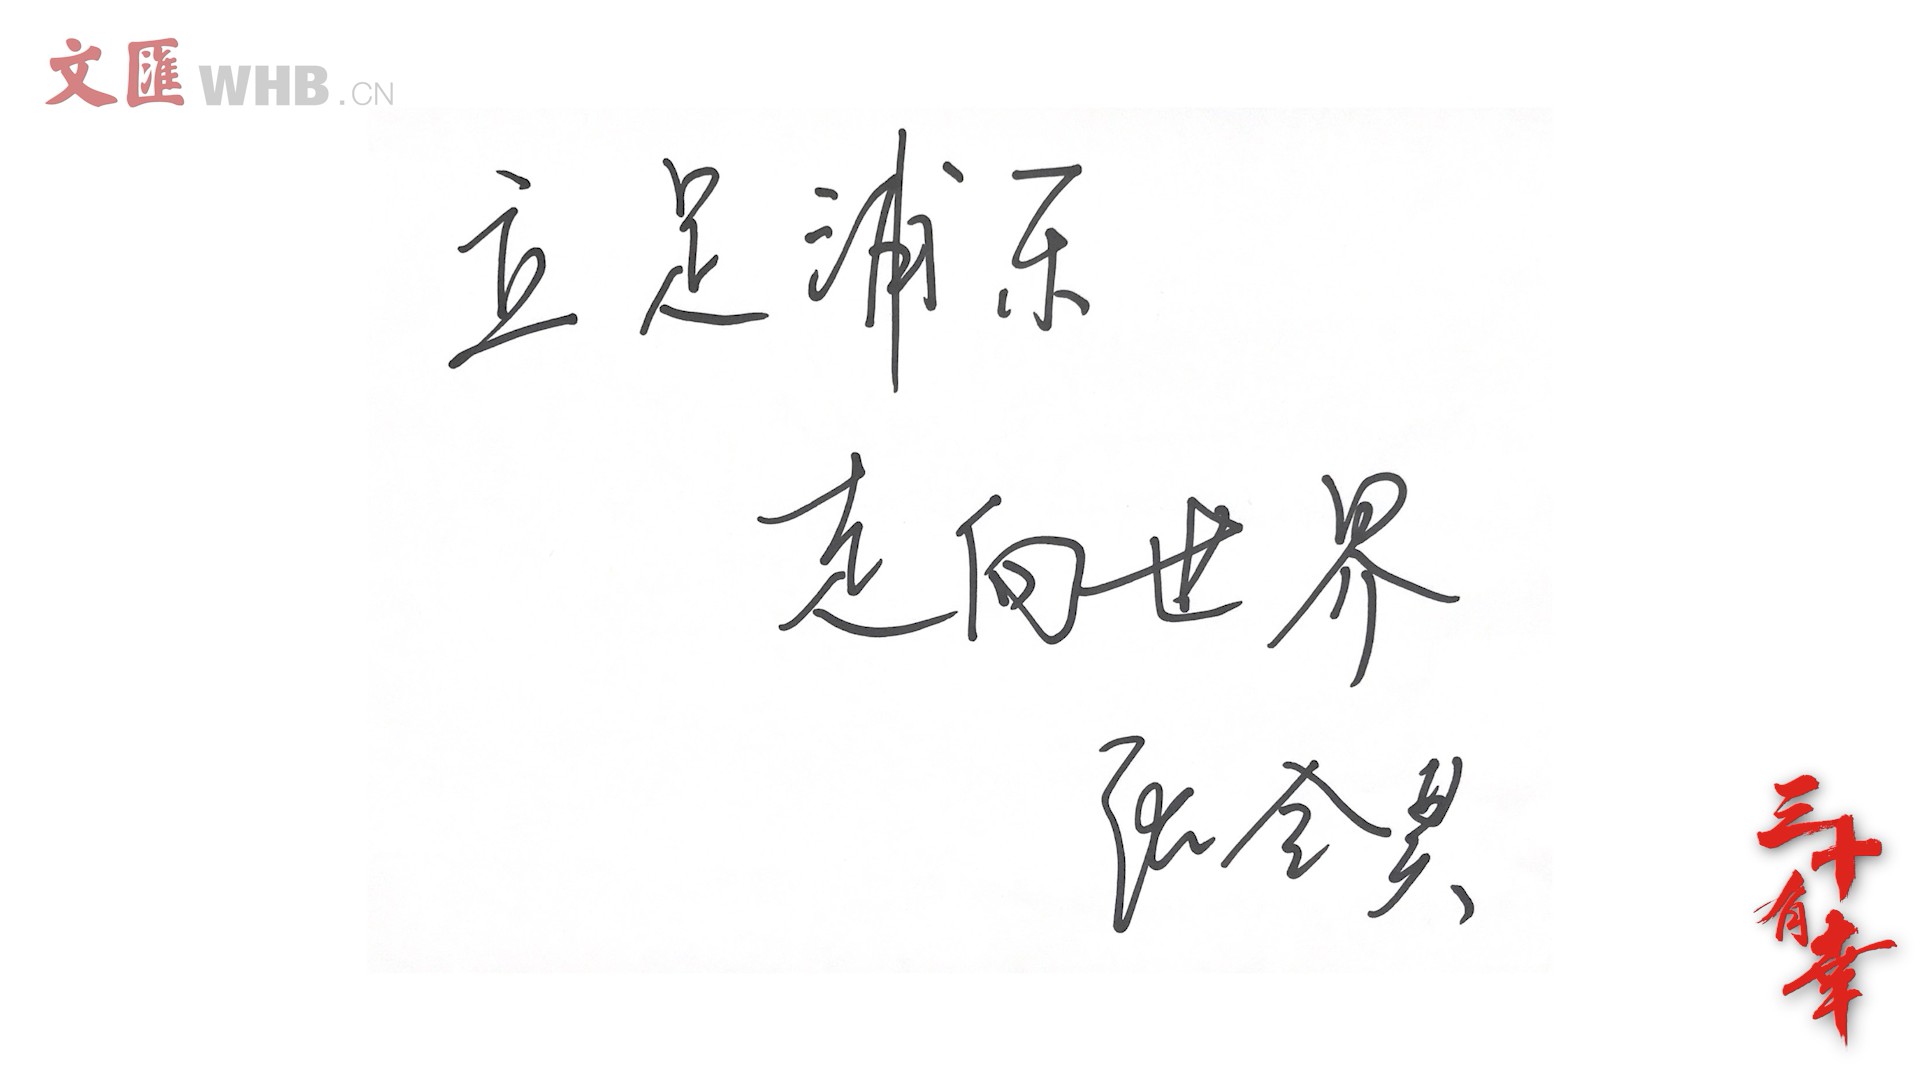 文匯 WHB.CN
立足浦东
走向世界
张全
三十有幸